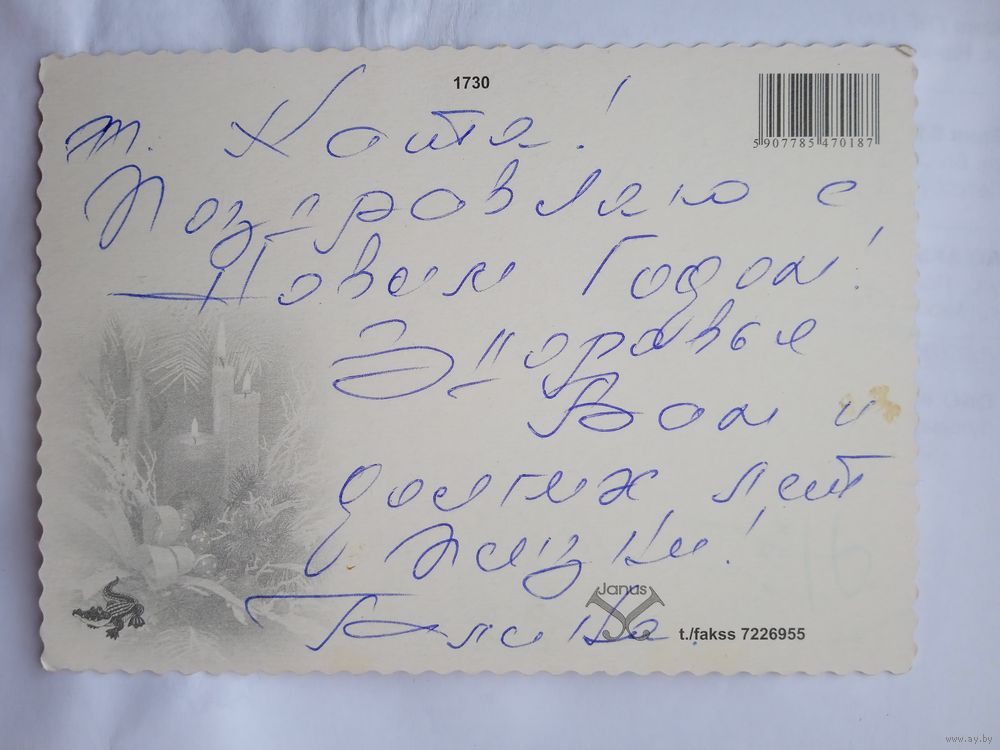 1730
5 907785 470187
т. Катя!
Поздравляю с
Новым Годом!
Здоровья
Вам и
долгих лет
жизни!
Галина.
Janus
t./fakss 7226955
www.ay.by